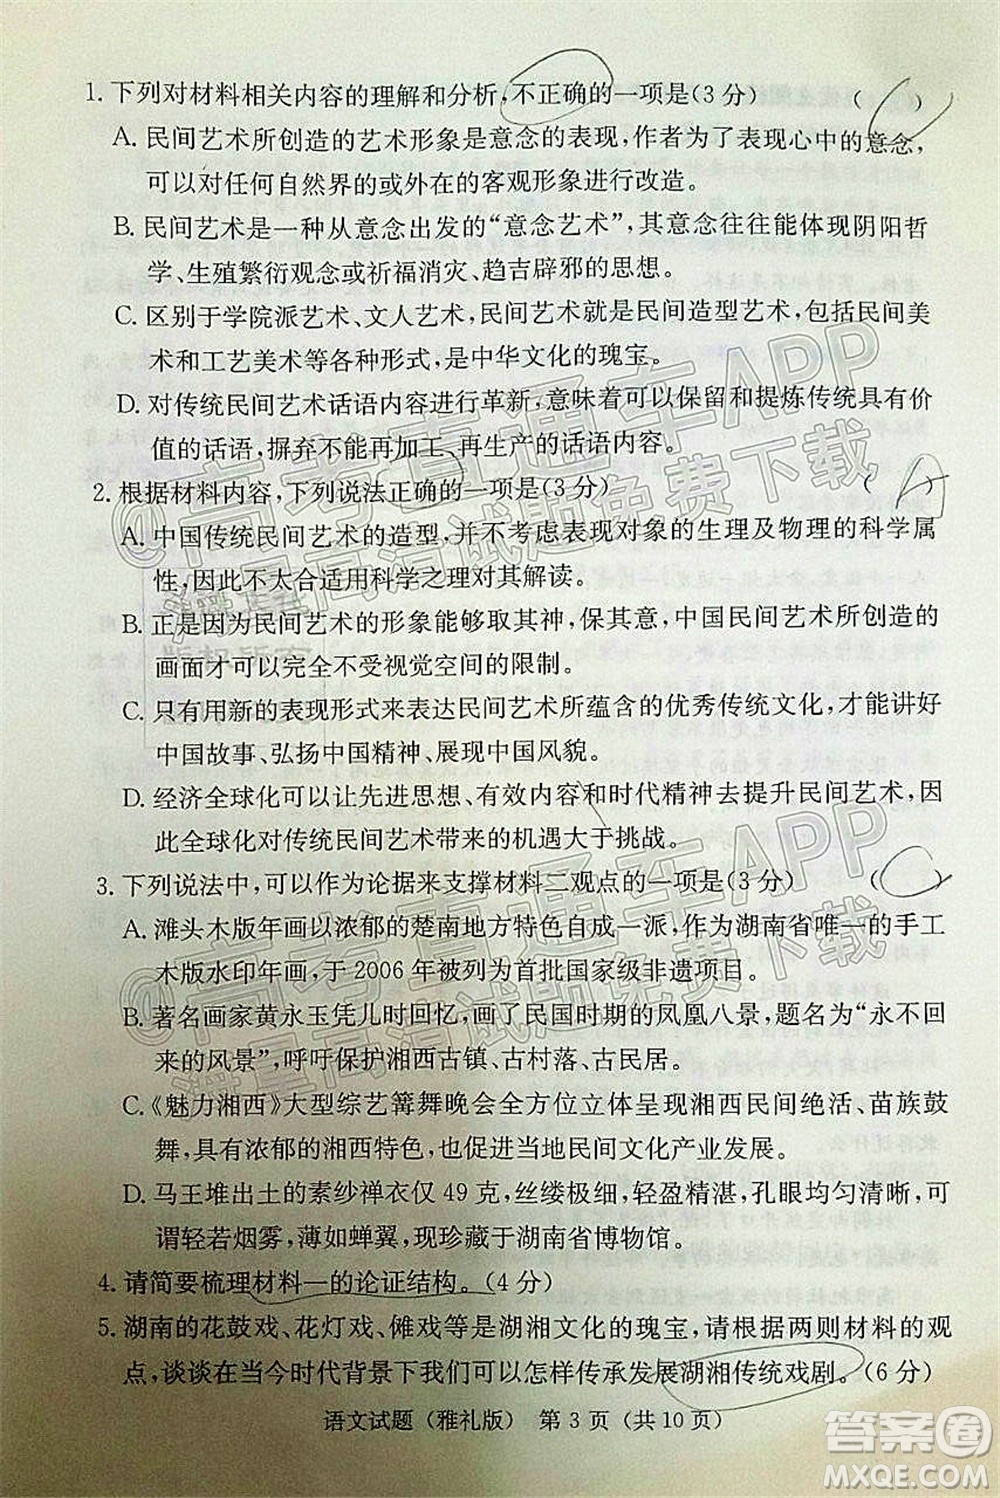 1. 下列对材料相关内容的理解和分析,不正确的一项是(3分) ( )
A. 民间艺术所创造的艺术形象是意念的表现,作者为了表现心中的意念,
可以对任何自然界的或外在的客观形象进行改造。
B. 民间艺术是一种从意念出发的“意念艺术”,其意念往往能体现阴阳哲
学、生殖繁衍观念或祈福消灾、趋吉辟邪的思想。
C. 区别于学院派艺术、文人艺术,民间艺术就是民间造型艺术,包括民间美
术和工艺美术等各种形式,是中华文化的瑰宝。
D. 对传统民间艺术话语内容进行革新,意味着可以保留和提炼传统具有价
值的话语,摒弃不能再加工、再生产的话语内容。
2. 根据材料内容,下列说法正确的一项是(3分) ( A )
A. 中国传统民间艺术的造型,并不考虑表现对象的生理及物理的科学属
性,因此不太合适用科学之理对其解读。
B. 正是因为民间艺术的形象能够取其神,保其意,中国民间艺术所创造的
画面才可以完全不受视觉空间的限制。
C. 只有用新的表现形式来表达民间艺术所蕴含的优秀传统文化,才能讲好
中国故事、弘扬中国精神、展现中国风貌。
D. 经济全球化可以让先进思想、有效内容和时代精神去提升民间艺术,因
此全球化对传统民间艺术带来的机遇大于挑战。
3. 下列说法中,可以作为论据来支撑材料二观点的一项是(3分) ( C )
A. 滩头木版年画以浓郁的楚南地方特色自成一派,作为湖南省唯一的手工
木版水印年画,于2006年被列为首批国家级非遗项目。
B. 著名画家黄永玉凭儿时回忆,画了民国时期的凤凰八景,题名为“永不回
来的风景”,呼吁保护湘西古镇、古村落、古民居。
C.《魅力湘西》大型综艺篝舞晚会全方位立体呈现湘西民间绝活、苗族鼓
舞,具有浓郁的湘西特色,促进当地民间文化产业发展。
D. 马王堆出土的素纱襌衣仅49克,丝缕极细,轻盈精湛,孔眼均匀清晰,可
谓轻若烟雾,薄如蝉翼,现珍藏于湖南省博物馆。
4. 请简要梳理材料一的论证结构。(4分)
5. 湖南的花鼓戏、花灯戏、傩戏等是湖湘文化的瑰宝,请根据两则材料的观
点,谈谈在当今时代背景下我们可以怎样传承发展湖湘传统戏剧。(6分)
语文试题（雅礼版） 第3页（共10页）
@高考直通车APP
海量高清试题免费下载
版权所有
@高考直通车APP
海量高清试题免费下载
答案圈
MXQE.COM